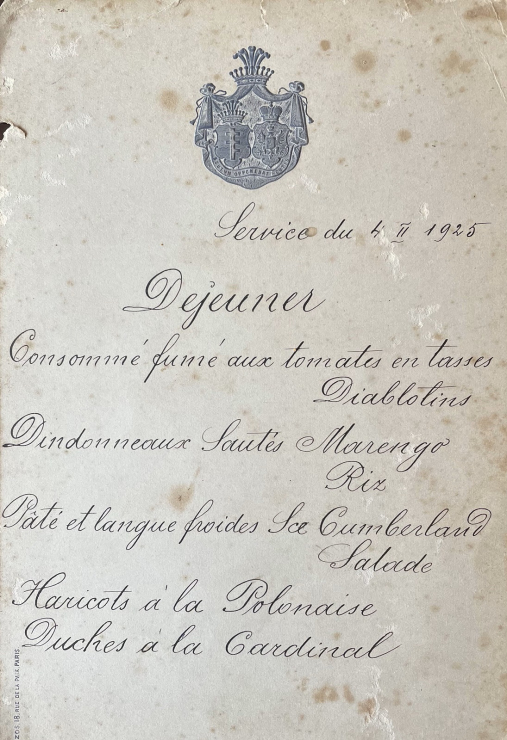 Service du 4 II 1925
Dejeuner
Consommé fumé aux tomates en tasses
Diablotins
Dindonneaux Sautés Marengo
Riz
Pâté et langue froides Sce Cumberland
Salade
Haricots à la Polonaise
Duches à la Cardinal
18, RUE DE LA PAIX. PARIS